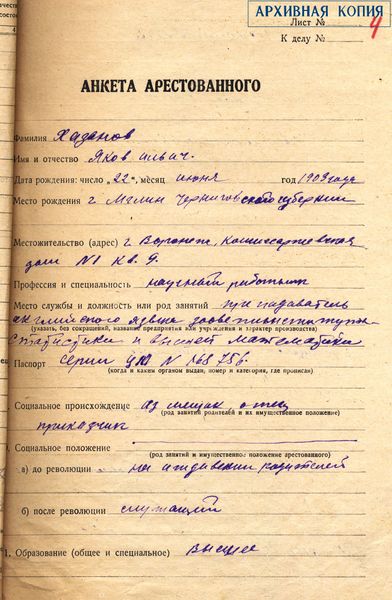 АРХИВНАЯ КОПИЯ
Лист №
К делу № 4
АНКЕТА АРЕСТОВАННОГО
Фамилия Хазанов
Имя и отчество Яков ильич.
Дата рождения: число „22“, месяц июня год 1903 года
Место рождения г. Мглин Черниговской губернии
Местожительство (адрес) г. Воронеж, Комиссаржевская
дом №1 кв. 9.
Профессия и специальность научный работник
Место службы и должность или род занятий преподаватель
английского языка зооветинститута
(указать, без сокращений, название предприятия или учреждения и характер производства)
статистики и высшей математики
Паспорт серии № 168756.
(когда и каким органом выдан, номер и категория, где прописан)
Социальное происхождение из мещан отец
(род занятий родителей и их имущественное положение)
приказчик
Социальное положение
(род занятий и имущественное положение арестованного)
а) до революции на иждивении родителей
б) после революции служащий
1. Образование (общее и специальное) высшее